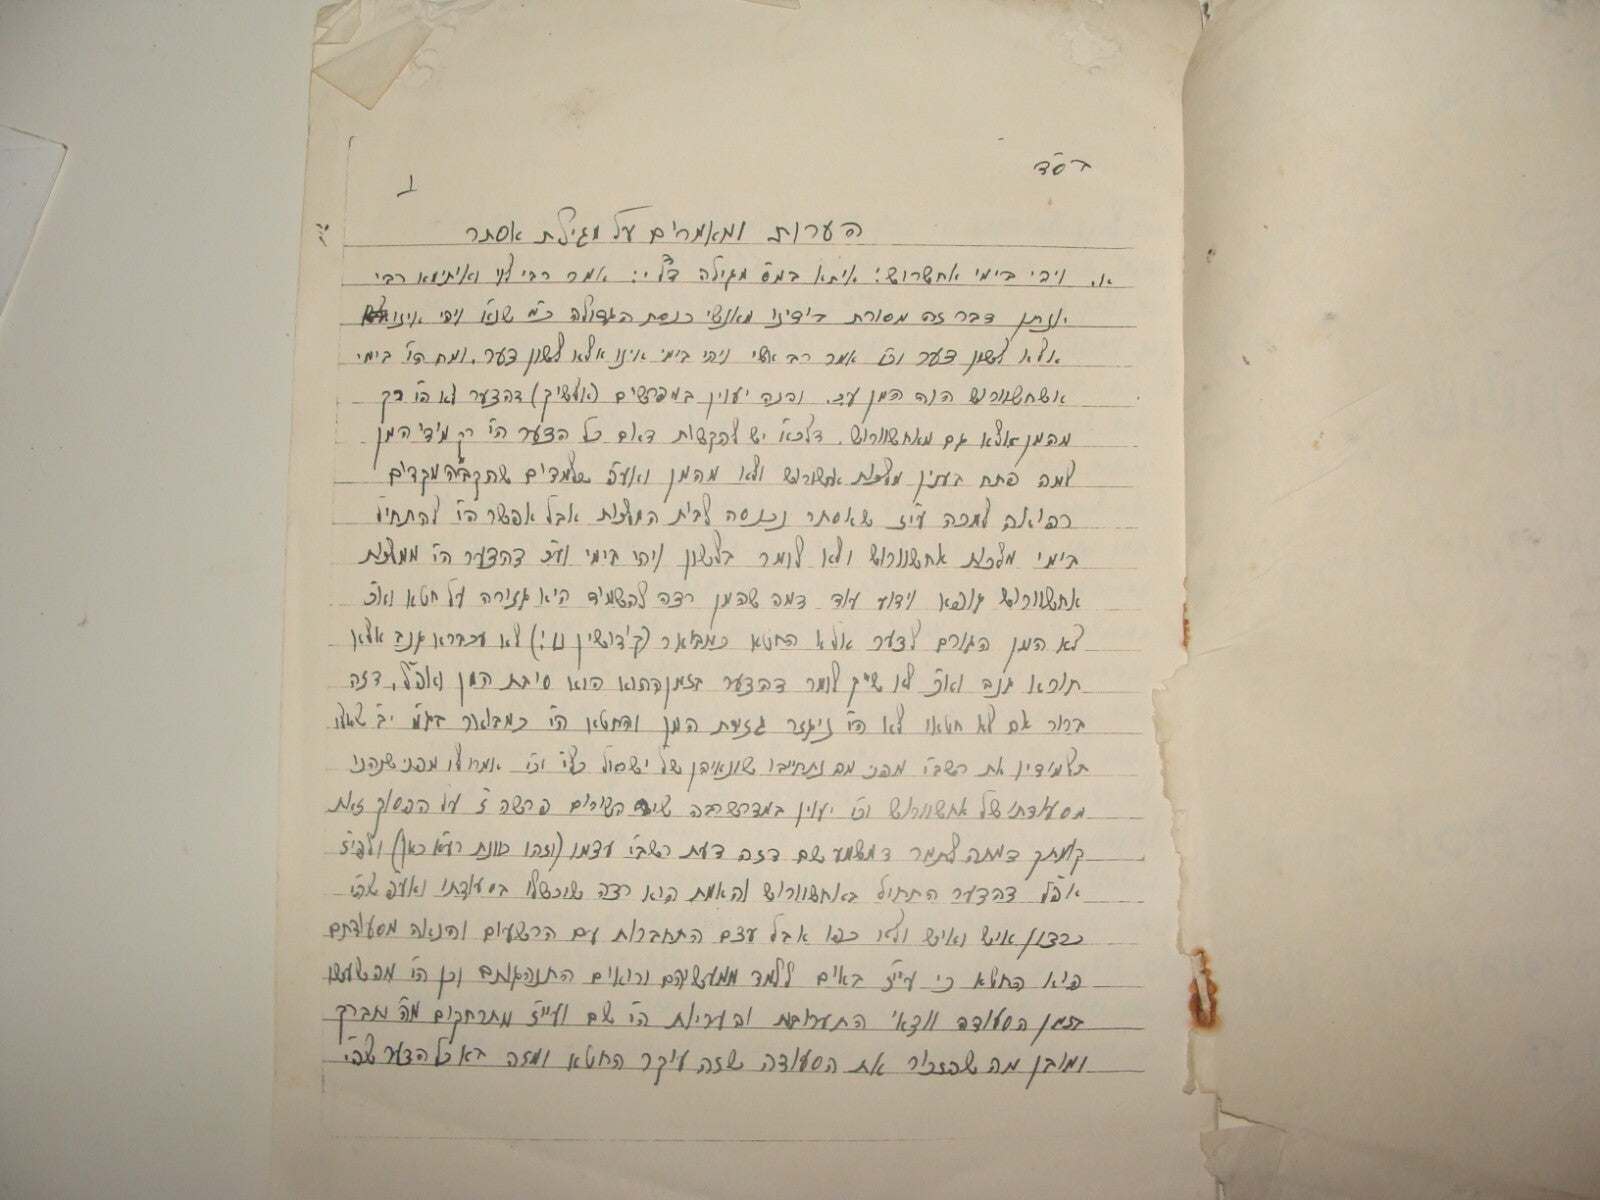 בס״ד
1
הערות ומאמרים על מגילת אסתר
א. ויהי בימי אחשרוש: איתא במס׳ מגילה דף י: אמר רבי לוי ואיתימא רבי
יונתן דבר זה מסורת בידינו מאנשי כנסת הגדולה כ״מ שנא׳ ויהי אינו
אלא לשון צער וכו׳ אמר רב אשי ויהי בימי אינו אלא לשון צער. ומה הי׳ בימי
אחשוורוש הוה המן ע״כ. והנה יעוין במפרשים (אלשיך) דהצער לא הי׳ רק
מהמן אלא גם מאחשוורוש. דלכאו׳ יש להקשות דאם כל הצער הי׳ רק מידי המן
למה פתח בענין מלכות אחשורוש ולא מהמן ואע״פ שלמדים שהקב״ה מקדים
רפואה למכה ע״ז שאסתר נכנסה לבית המלכות אבל אפשר הי׳ להתחיל
בימי מלכות אחשוורוש ולא לומר בלשון ויהי בימי וע״כ דהצער הי׳ ממלכות
אחשוורוש גופא וידוע עוד דמה שהמן רצה להשמיד היא גזירה על חטא וא״כ
לא המן הגורם לצער אלא החטא כמבואר (קידושין נו:) לאו עכברא גנב אלא
חורא גנב וא״כ לא שייך לומר דהצער בזמן ההוא הוא סיבת המן ואפ״ל, דזה
ברור אם לא חטאו לא הי׳ ניגזר גזירת המן והחטא הי׳ כמבואר בגמ׳ י״ב שאלו
תלמידיו את רשב״י מפני מה נתחייבו שונאיהן של ישראל כלי׳ וכו׳ אמרו לו מפני שנהנו
מסעודתו של אחשוורוש וכו׳ יעוין במדרש רבה שיר השירים פרשה ז׳ על הפסוק זאת
קומתך דמתה לתמר דמשמע שם דזה דעת רשב״י עצמו (וזהו כוונת רע״א כאן) ולפי״ז
אפ״ל דהצער התחיל באחשוורוש והאמת הוא רצה שיכשלו בסעודתו ואע״פ שהי׳
כרצון איש ואיש ולא כפו אבל עצם התחברות עם הרשעים והנאה מסעודתם
היא החטא כי עי״ז באים ללמד ממעשיהם ורואים התנהגותם וכן הי׳
בזמן הסעודה וודאי התערובת והעריות הי׳ שם ועי״ז מתרחקים מה׳ יתברך
ומובן מה שהזכיר את הסעודה שזה עיקר החטא ומזה בא כל הצער שהי׳